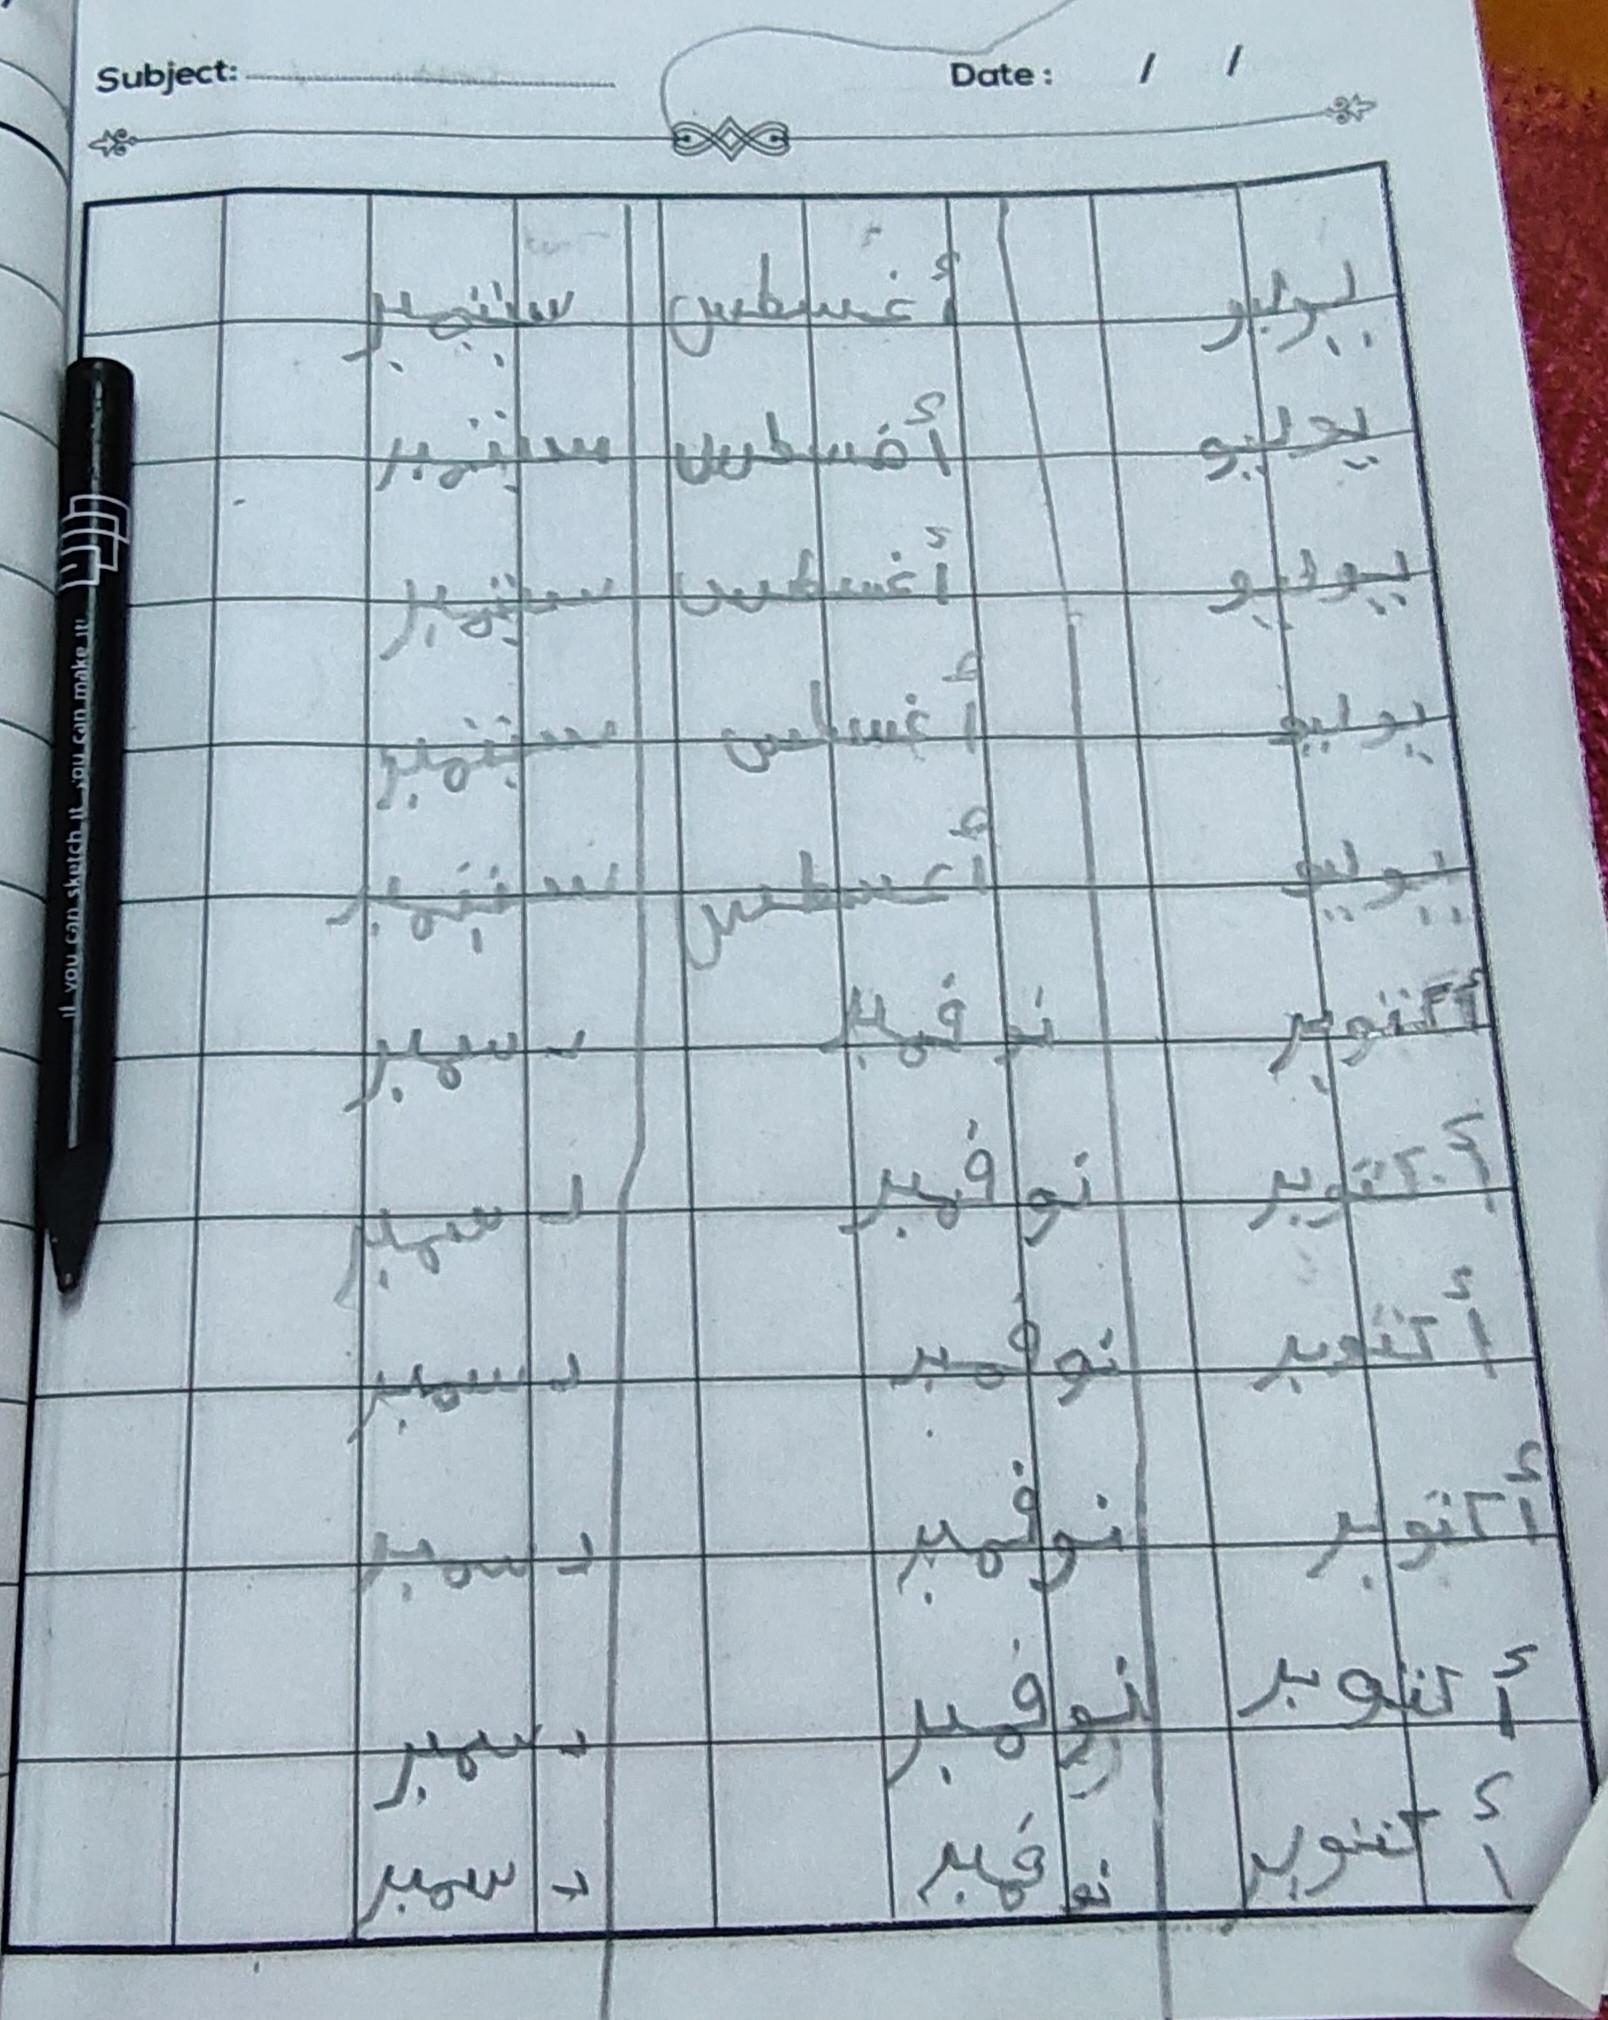 Subject: Date: / /
يوليو أغسطس سبتمبر
يوليو أغسطس سبتمبر
يوليو أغسطس سبتمبر
يوليو أغسطس سبتمبر
يوليو أغسطس سبتمبر
أكتوبر نوفمبر دسمبر
أكتوبر نوفمبر دسمبر
أكتوبر نوفمبر دسمبر
أكتوبر نوفمبر دسمبر
أكتوبر نوفمبر دسمبر
أكتوبر نوفمبر دسمبر
If you can sketch it you can make it